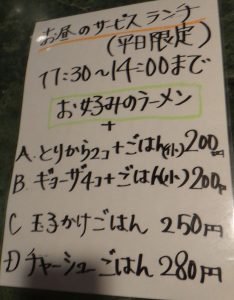 お昼のサービスランチ
(平日限定)
11:30〜14:00まで
お好みのラーメン
+
A. とりから2コ+ごはん(小) 200円
B. ギョーザ4コ+ごはん(小) 200円
C 玉子かけごはん 250円
D チャーシューごはん 280円